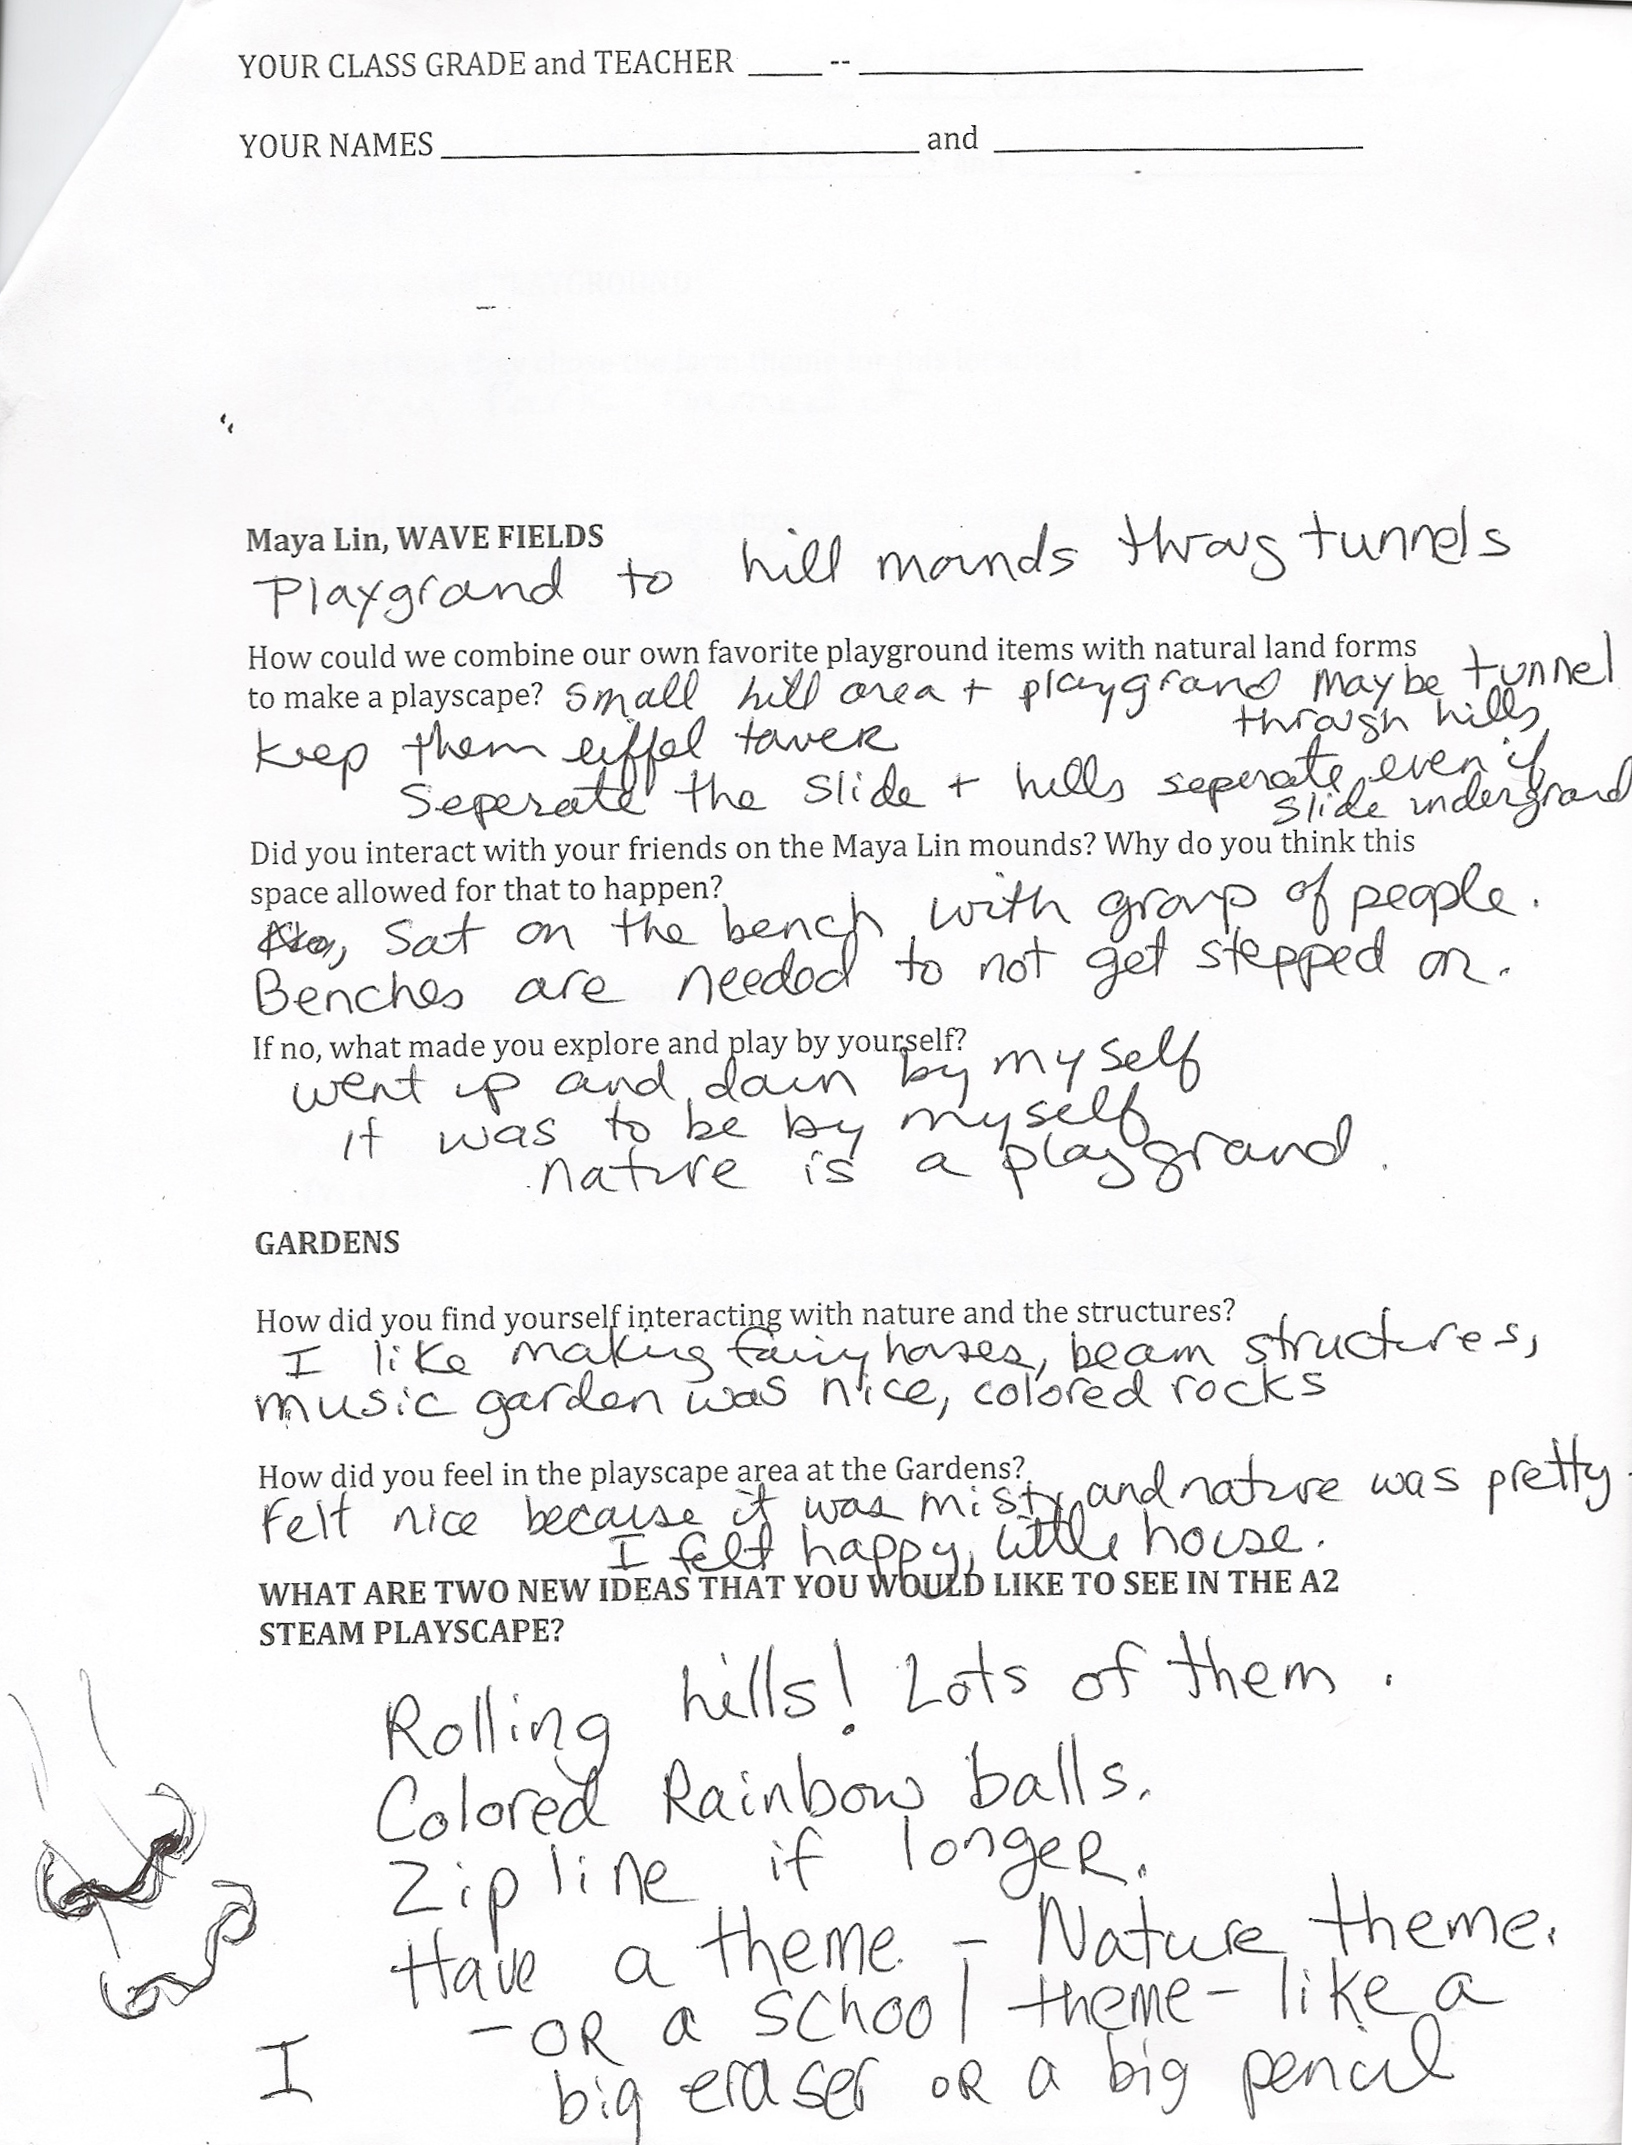 YOUR CLASS GRADE and TEACHER _____ -- ______________________________
YOUR NAMES ______________________________ and ______________________
Maya Lin, WAVE FIELDS
Playground to hill mounds throug tunnels
How could we combine our own favorite playground items with natural land forms
to make a playscape? Small hill area + playground Maybe tunnel
through hills
keep them eiffel tower
Seperate the slide + hills seperate even if
slide underground
Did you interact with your friends on the Maya Lin mounds? Why do you think this
space allowed for that to happen?
Sat on the bench with group of people.
Benches are needed to not get stepped on.
If no, what made you explore and play by yourself?
went up and down by myself
it was to be by myself
nature is a playground.
GARDENS
How did you find yourself interacting with nature and the structures?
I like making fairy houses, beam structures,
music garden was nice, colored rocks
How did you feel in the playscape area at the Gardens?
Felt nice because it was misty and nature was pretty.
I felt happy, little house.
WHAT ARE TWO NEW IDEAS THAT YOU WOULD LIKE TO SEE IN THE A2
STEAM PLAYSCAPE?
Rolling hills! Lots of them.
Colored Rainbow balls.
Zip line if longer.
Have a theme. - Nature theme.
- OR a school theme - like a
I big eraser OR a big pencil